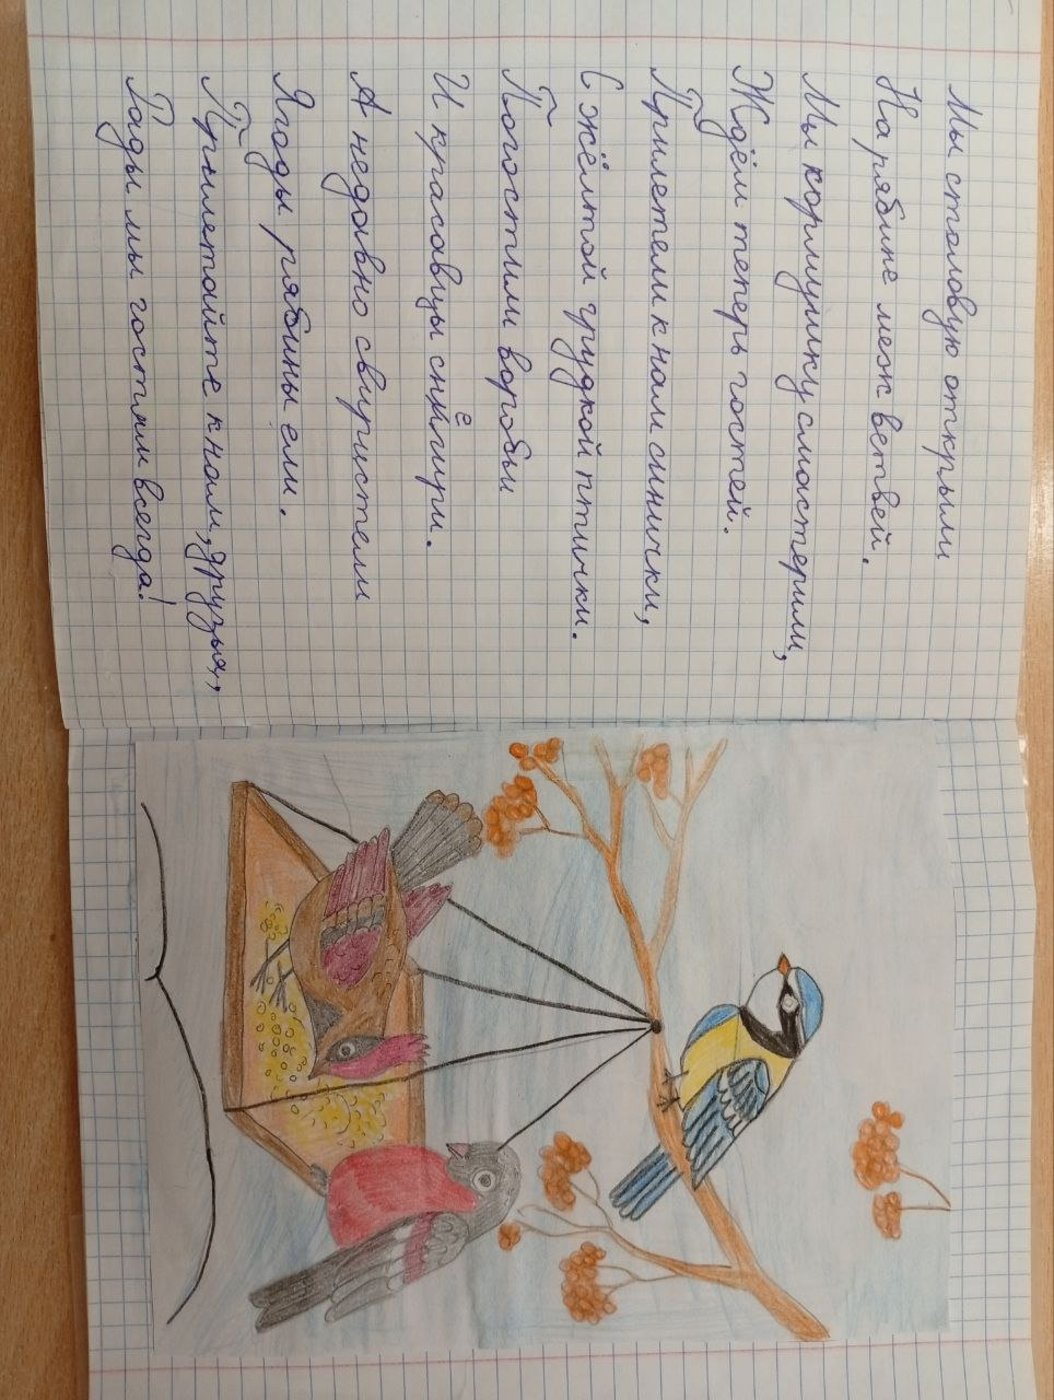 Мы столовую открыли
На рябине меж ветвей.
Мы кормушку смастерили,
Ждём теперь гостей.
Прилетели к нам синички,
С жёлтой грудкой птички.
Погостили воробьи
И красавцы снегири.
А недавно свиристели
Ягоды рябины ели.
Прилетайте к нам, друзья,
Рады мы гостям всегда!